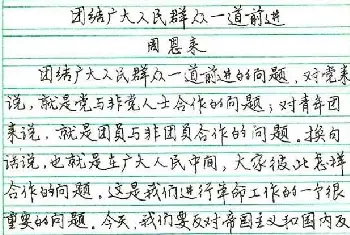 团结广大人民群众一道前进
周恩来
团结广大人民群众一道前进的问题，对党来
说，就是党与非党人士合作的问题；对青年团
来说，就是团员与非团员合作的问题。换句
话说，也就是在广大人民中间，大家彼此怎样
合作的问题。这是我们进行革命工作的一个很
重要的问题。今天，我们要反对帝国主义和国内反